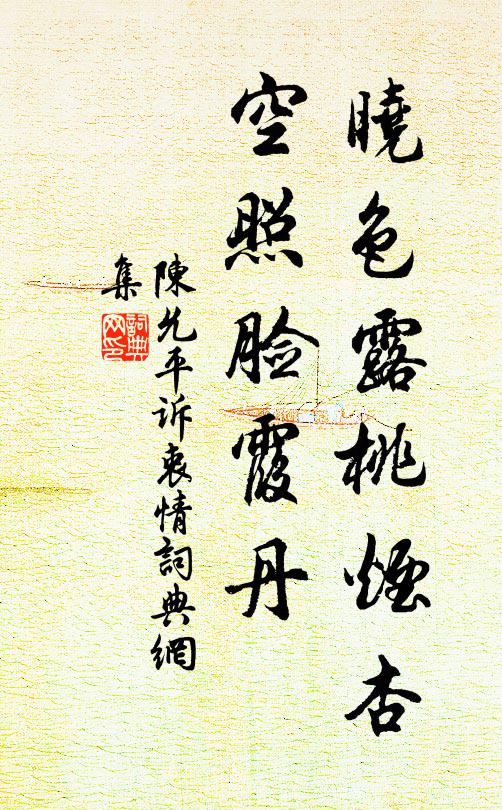 曉色露桃煙杏
空照臉霞丹
陳允平诉衷情詞典網
集
詞典
网印